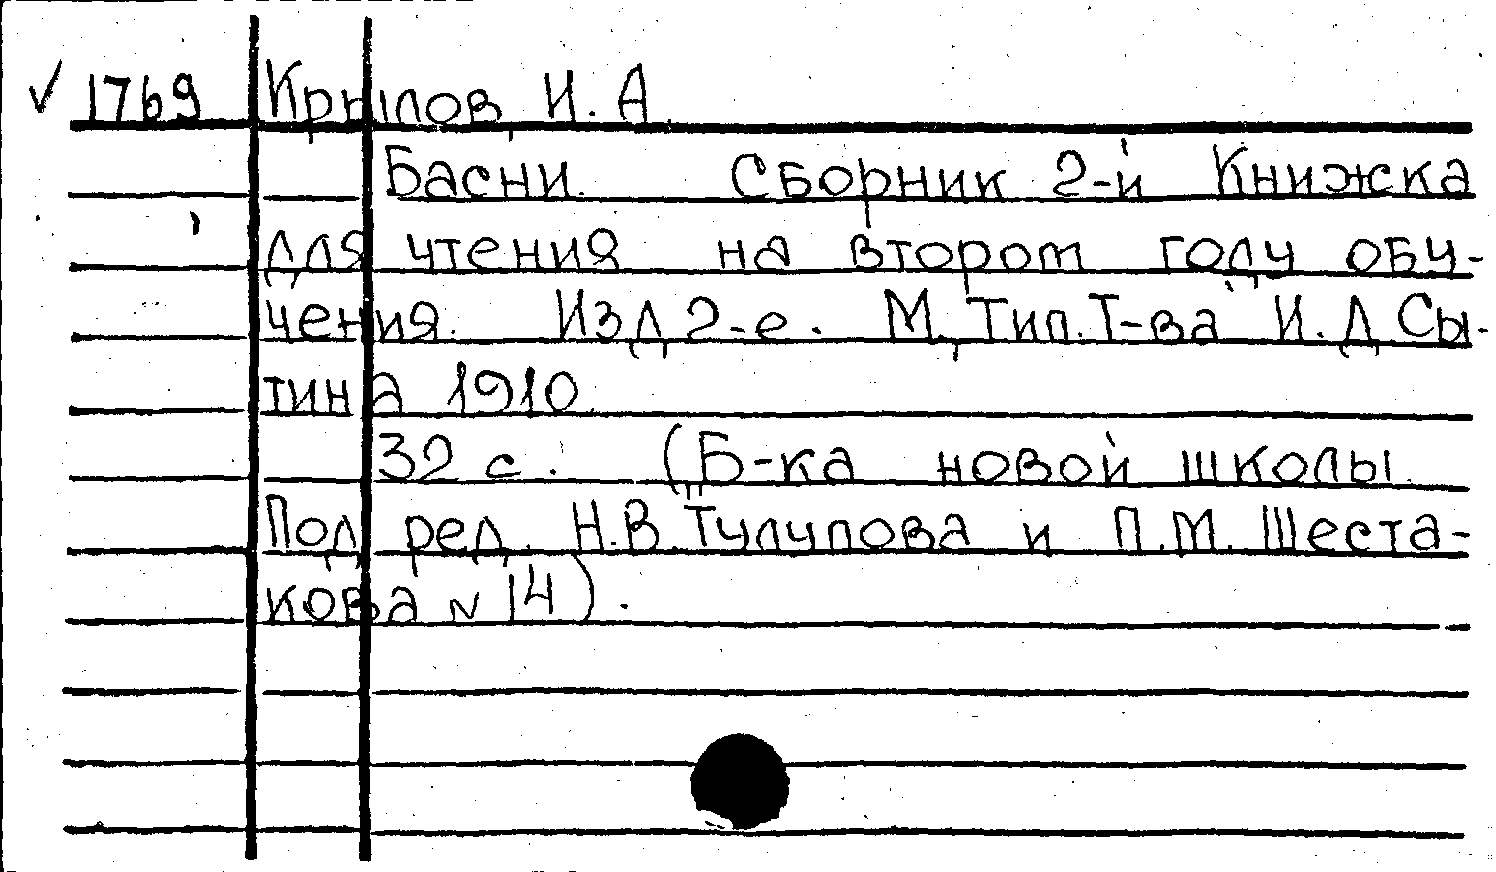 ✓ 1769 Крылов, И. А
Басни. Сборник 2-й Книжка
для чтения на втором году обу-
чения. Изд 2-е. М, Тип. Т-ва И. Д Сы-
тина 1910.
32 с. (Б-ка новой школы.
Под ред. Н.В. Тулупова и П.М. Шеста-
кова N 14).